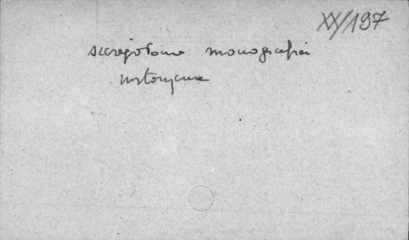 XX/197
szczegółowe monografie
historyczne